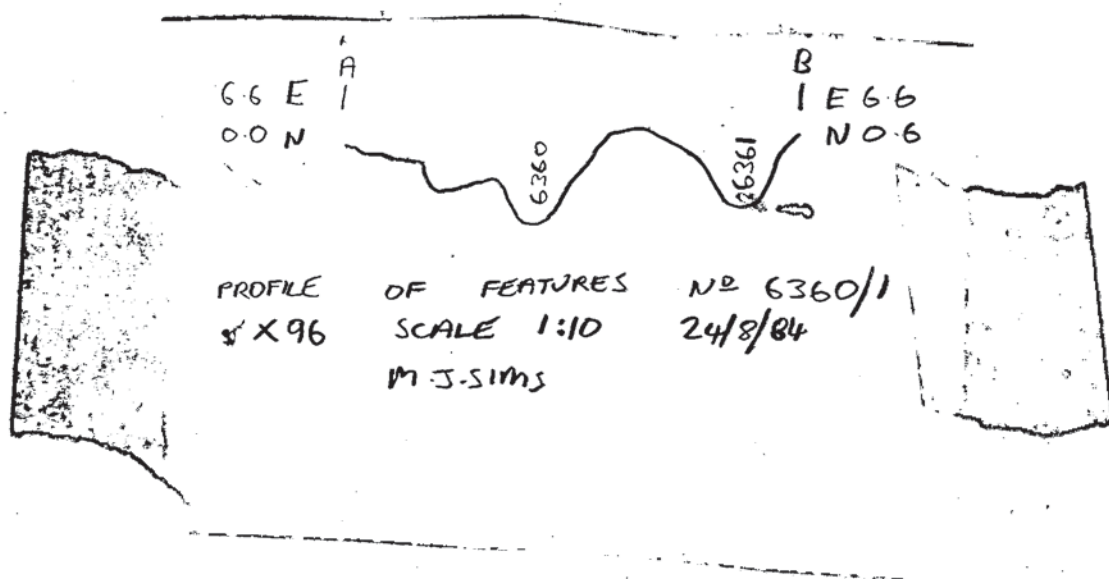 A B
6.6 E E 6.6
0.0 N N 0.6
6360 6361
PROFILE OF FEATURES Nº 6360/1
X96 SCALE 1:10 24/8/84
M.J.SIMS